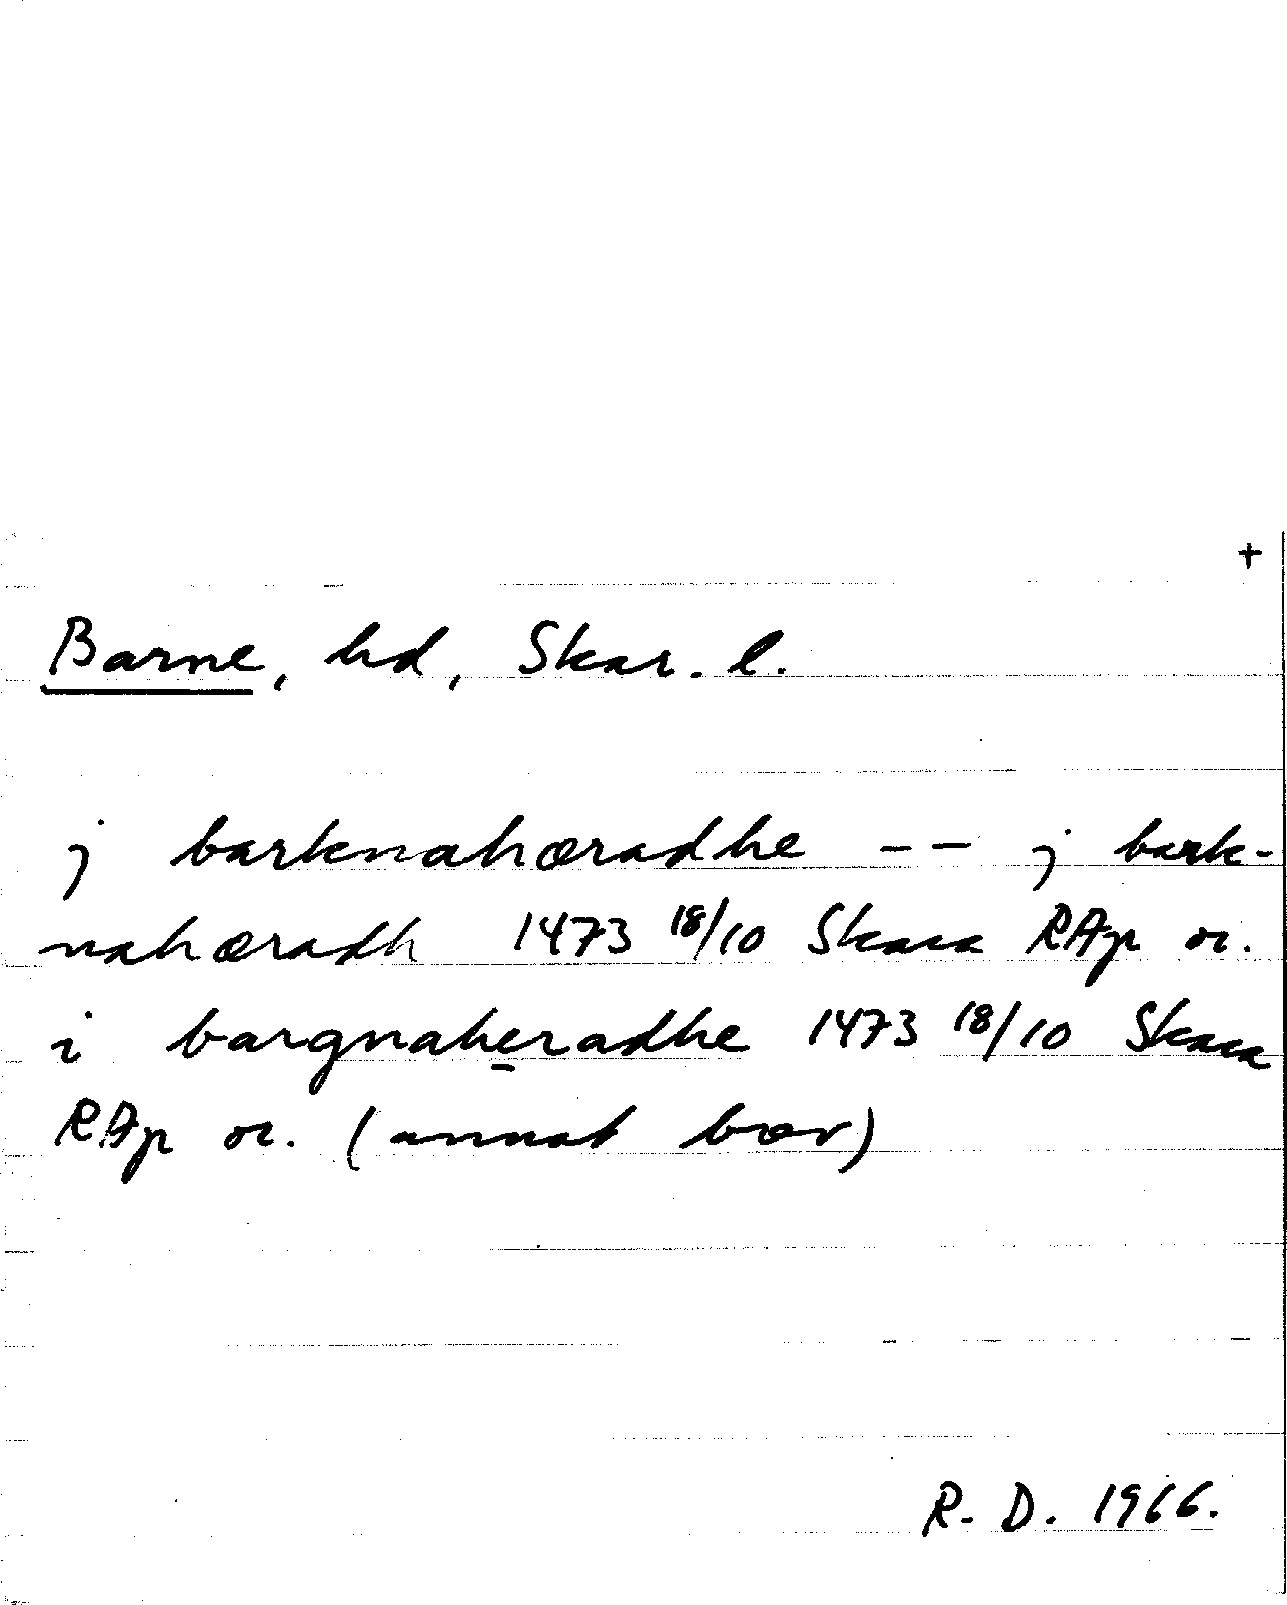 +
Barne, hd, Skar. l.
j barknahæradhe -- j bark-
nahæradh 1473 18/10 Skara RAp or.
i bargnaheradhe 1473 18/10 Skara
RAp or. (annat brev)
R. D. 1966.